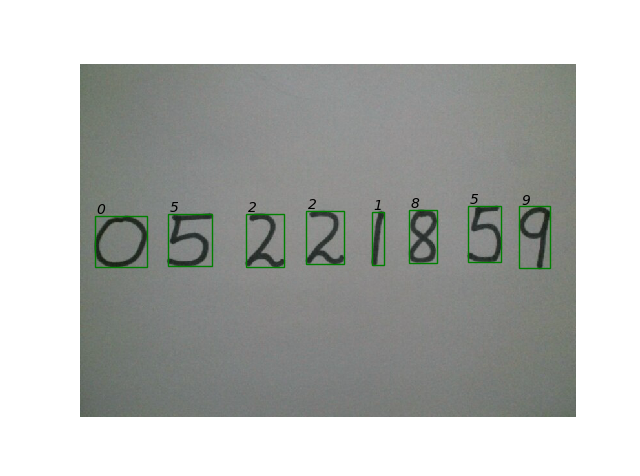 0 5 2 2 1 8 5 9
0 5 2 2 1 8 5 9